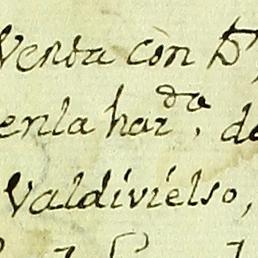 Venta con D.
enla haz.da de
Valdivielso,